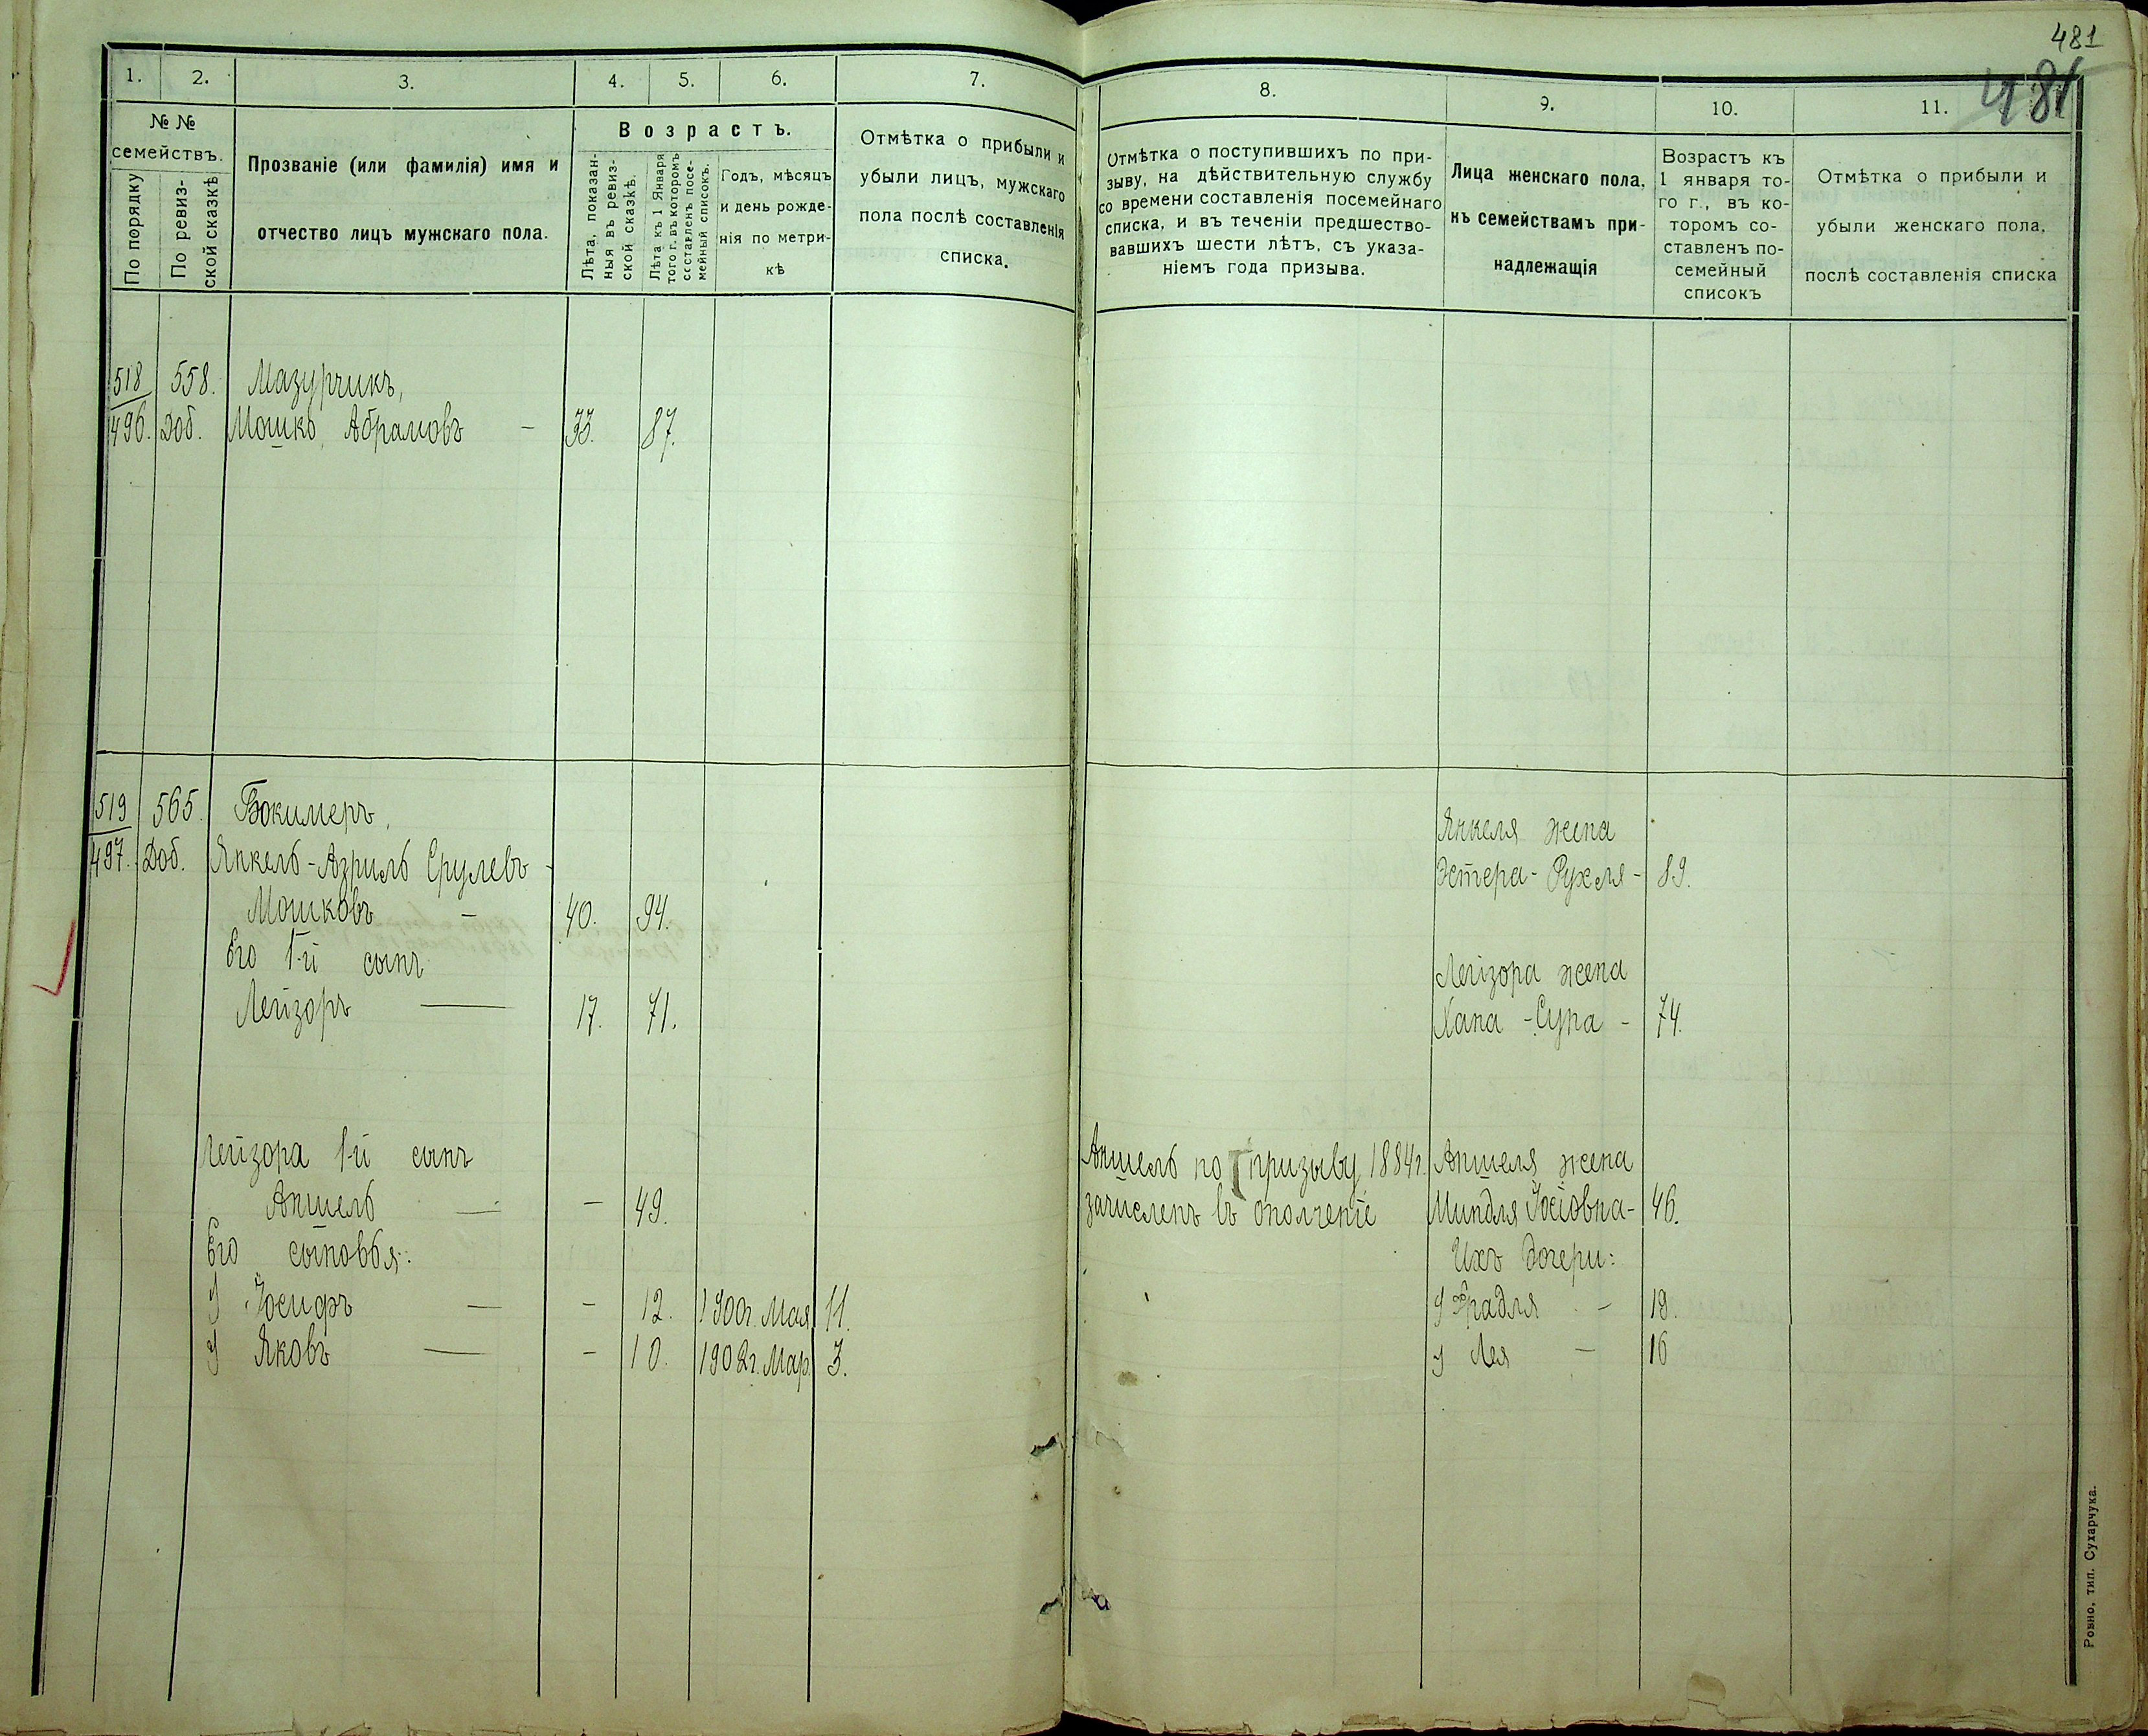 481
481
1.
2.
3.
4.
5.
6.
7.
8.
9.
10.
11.
№ №
семействъ.
По порядку
По ревиз-
ской сказкѣ
Прозваніе (или фамилія) имя и
отчество лицъ мужскаго пола.
Возрастъ.
Лѣта, показан-
ныя въ ревиз-
ской сказкѣ.
Лѣта къ 1 Января
того г. въ которомъ
составленъ посе-
мейный списокъ.
Годъ, мѣсяцъ
и день рожде-
нія по метри-
кѣ
Отмѣтка о прибыли и
убыли лицъ, мужскаго
пола послѣ составленія
списка.
Отмѣтка о поступившихъ по при-
зыву, на дѣйствительную службу
со времени составленія посемейнаго
списка, и въ теченіи предшество-
вавшихъ шести лѣтъ, съ указа-
ніемъ года призыва.
Лица женскаго пола,
къ семействамъ при-
надлежащія
Возрастъ къ
1 января то-
го г., въ ко-
торомъ со-
ставленъ по-
семейный
списокъ
Отмѣтка о прибыли и
убыли женскаго пола,
послѣ составленія списка
518 558. Мазурчикъ,
496. Доб. Мошко Абрамовъ - 33. 87.
519 565. Бокимеръ, Янкеля жена
497. Доб. Янкель-Азриль Срулевъ - Эстера-Рухля - 89.
Мошковъ - 40. 94.
Его 1-й сынъ Лейзора жена
Лейзоръ — 17. 71. Хана-Сура - 74.
Лейзора 1-й сынъ Аншель по призыву 1884г. Аншеля жена
Аншель — - 49. зачисленъ въ ополченіе Миндля Іосіовна - 46.
Его сыновья: Ихъ дочери:
Іосифъ — - 12. 1900г. Мая 11. Фрадля - 19.
Яковъ — - 10. 1902г. Мар. 3. Лея — 16
Ровно, тип. Сухарчука.